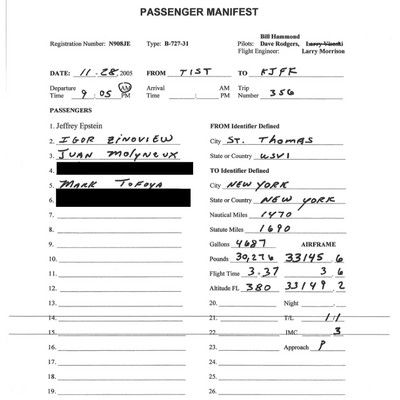 PASSENGER MANIFEST
Bill Hammond
Registration Number: N908JE Type: B-727-31 Pilots: Dave Rodgers, Larry Visoski
Flight Engineer: Larry Morrison
DATE: 11.28,2005 FROM TIST TO KJFK
Departure Time 9:05 AM PM Arrival Time AM PM Trip Number 356
PASSENGERS
1. Jeffrey Epstein FROM Identifier Defined
2. IGOR ZINOVIEW City ST. THOMAS
3. JUAN MOLYNEUX State or Country USVI
4. TO Identifier Defined
5. MARK TOFOYA City NEW YORK
6. State or Country NEW YORK
7. Nautical Miles 1470
8. Statute Miles 1690
9. Gallons 4687 AIRFRAME
10. Pounds 30,276 33145.6
11. Flight Time 3.37 3 6
12. Altitude FL 380 33149.2
13. 20. Night
14. 21. T/L 1:1
15. 22. IMC 3
16. 23. Approach P
17. 24.
18. 25.
19. 26.